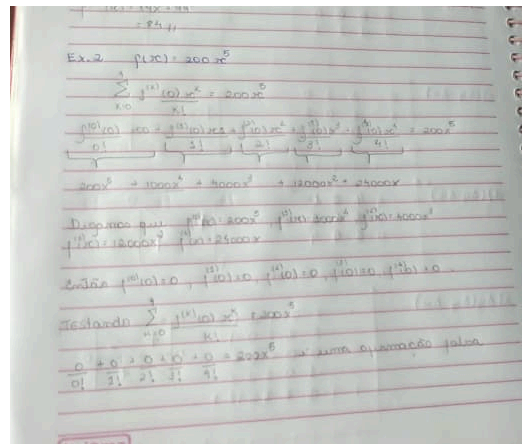 = 84 //
Ex. 2 f(x) = 200x⁵
∑ f⁽ᵏ⁾(0) xᵏ / k! = 200x⁵
f⁽⁰⁾(0) / 0! + f⁽¹⁾(0) x¹ / 1! + f⁽²⁾(0) x² / 2! + f⁽³⁾(0) x³ / 3! + f⁽⁴⁾(0) x⁴ / 4! = 200x⁵
200x⁵ + 1000x⁴ + 4000x³ + 12000x² + 24000x
Digamos que f⁽⁰⁾(x) = 200x⁵, f⁽¹⁾(x) = 1000x⁴ f⁽²⁾(x) = 4000x³
f⁽³⁾(x) = 12000x² f⁽⁴⁾(x) = 24000x
Então f⁽⁰⁾(0) = 0, f⁽¹⁾(0) = 0, f⁽²⁾(0) = 0, f⁽³⁾(0) = 0, f⁽⁴⁾(0) = 0.
Testando ∑ f⁽ᵏ⁾(0) xᵏ / k! = 200x⁵
0/0! + 0/1! + 0/2! + 0/3! + 0/4! = 200x⁵ é uma afirmação falsa